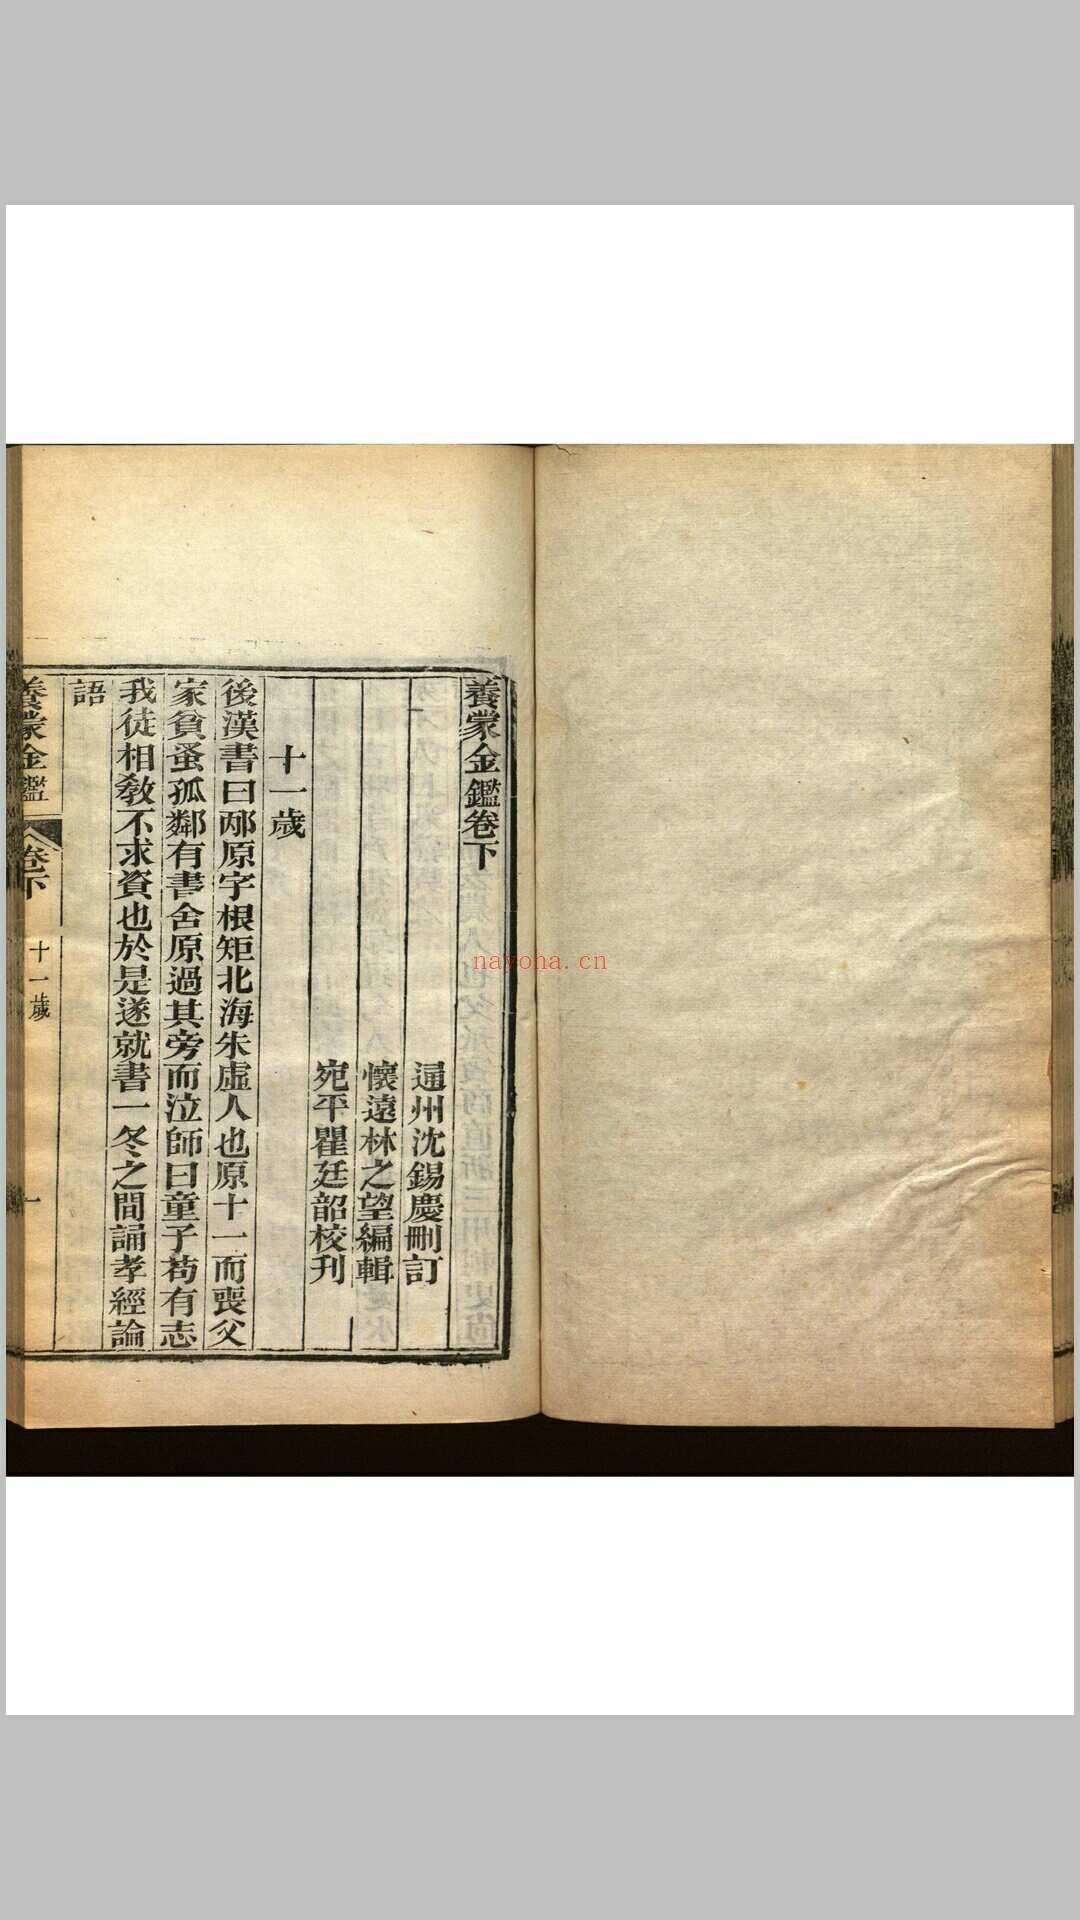 養蒙金鑑卷下
通州沈錫慶刪訂
懷遠林之望編輯
宛平瞿廷韶校刊
十一歲
後漢書曰邴原字根矩北海朱虛人也原十一而喪父
家貧蚤孤鄰有書舍原過其旁而泣師曰童子苟有志
我徒相教不求資也於是遂就書一冬之間誦孝經論
語
養蒙金鑑 卷下 十一歲 一
nayona.cn